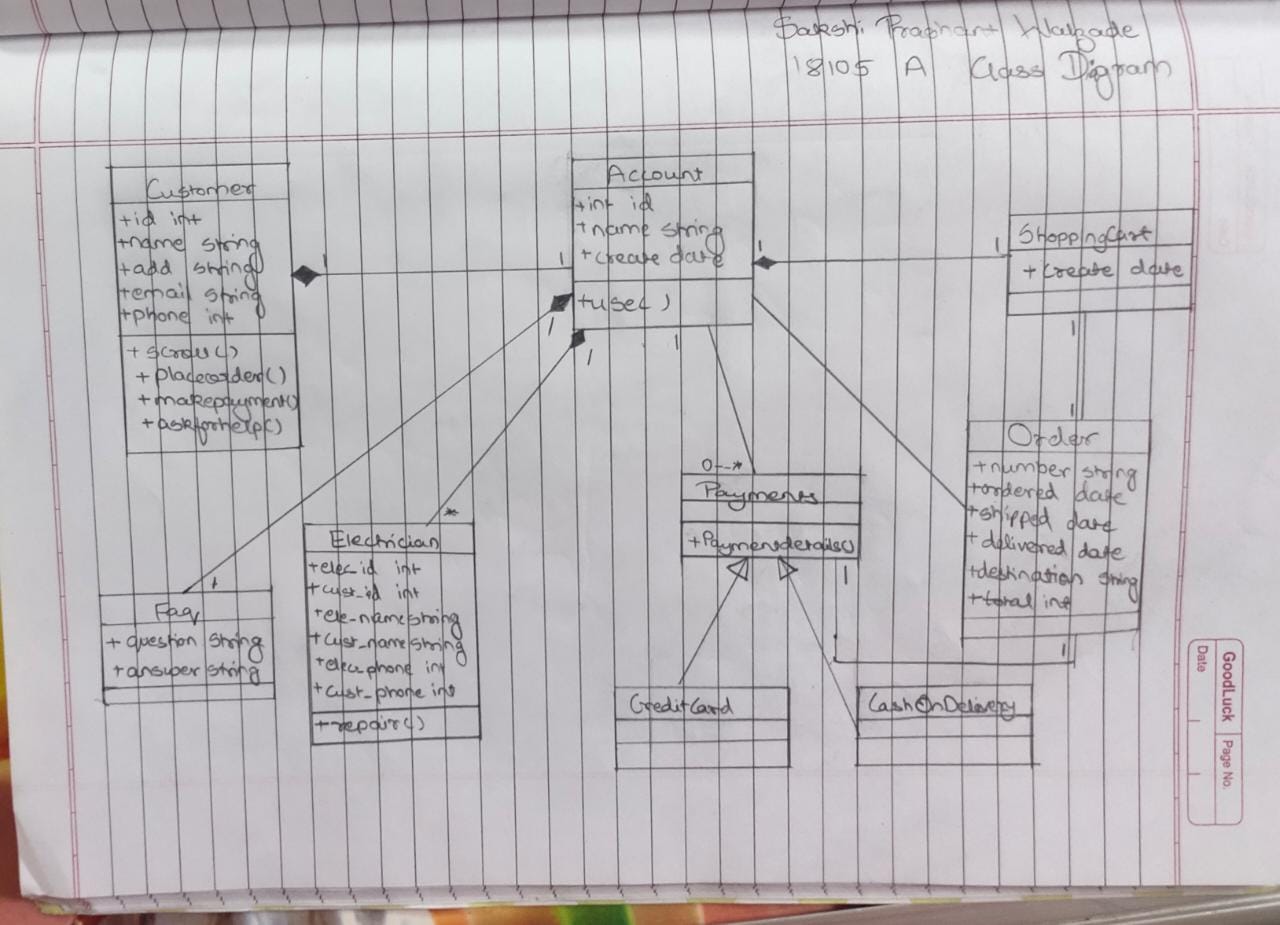 Sakshi Prashant Walzade
18105 A Class Digram
Customer
+id int
+name string
+add string
+email string
+phone int
+ scroll()
+ placeorder()
+makepayment()
+askforhelp()
1
1
Account
+int id
+name string
+create date
+use()
1
1
ShoppingCart
+ create date
1
1
1
1
1
Order
+number string
+ordered date
+shipped date
+ delivered date
+destination string
+total int
0--*
Payments
+Paymentdetails()
1
1
*
Electrician
+elec_id int
+cust_id int
+ele-name string
+cust_name string
+elec_phone int
+cust_phone int
+repair()
Faq
+ question string
+answer string
CreditCard
CashOnDelivery
GoodLuck
Page No.
Date